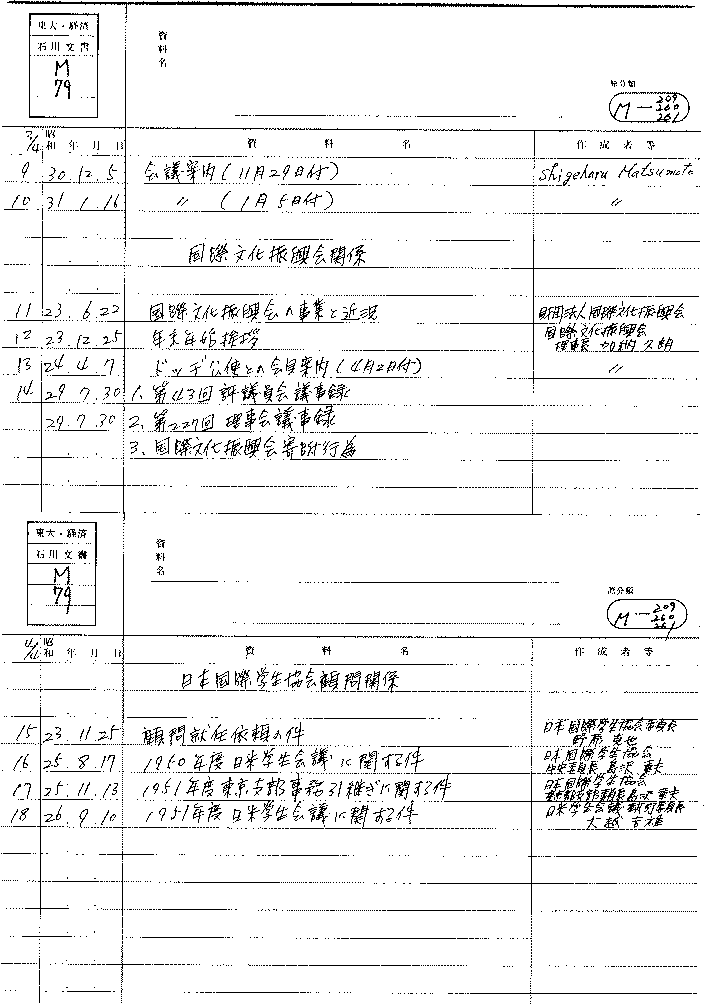 東大・経済
石川文書
M
79
資料名
原分類
M-209
260
261
3/4 昭和 年 月 日 資 料 名 作成者等
9 30.12.5 会議案内(11月29日付) Shigeharu Matsumoto
10 31.1.16 〃 (1月5日付) 〃
国際文化振興会関係
11 23.6.22 国際文化振興会の事業と近況 財団法人国際文化振興会
12 23.12.25 年末年始挨拶 国際文化振興会
理事長 加納久朗
13 24.4.7 ドッヂ公使との会見案内(4月2日付) 〃
14 29.7.30 1、第43回評議員会議事録
29.7.30 2、第227回理事会議事録
3、国際文化振興会寄附行為
東大・経済
石川文書
M
79
資料名
原分類
M-209
260
261
4/4 昭和 年 月 日 資 料 名 作成者等
日本国際学生協会顧問関係
15 23.11.25 顧問就任依頼の件 日本国際学生協会委員長
16 25.8.17 1950年度日米学生会議に関する件 日本国際学生協会
中央委員長
17 25.11.13 1951年度東京支部事務引継ぎに関する件 日本国際学生協会
18 26.9.10 1951年度日米学生会議に関する件 日米学生会議
大越